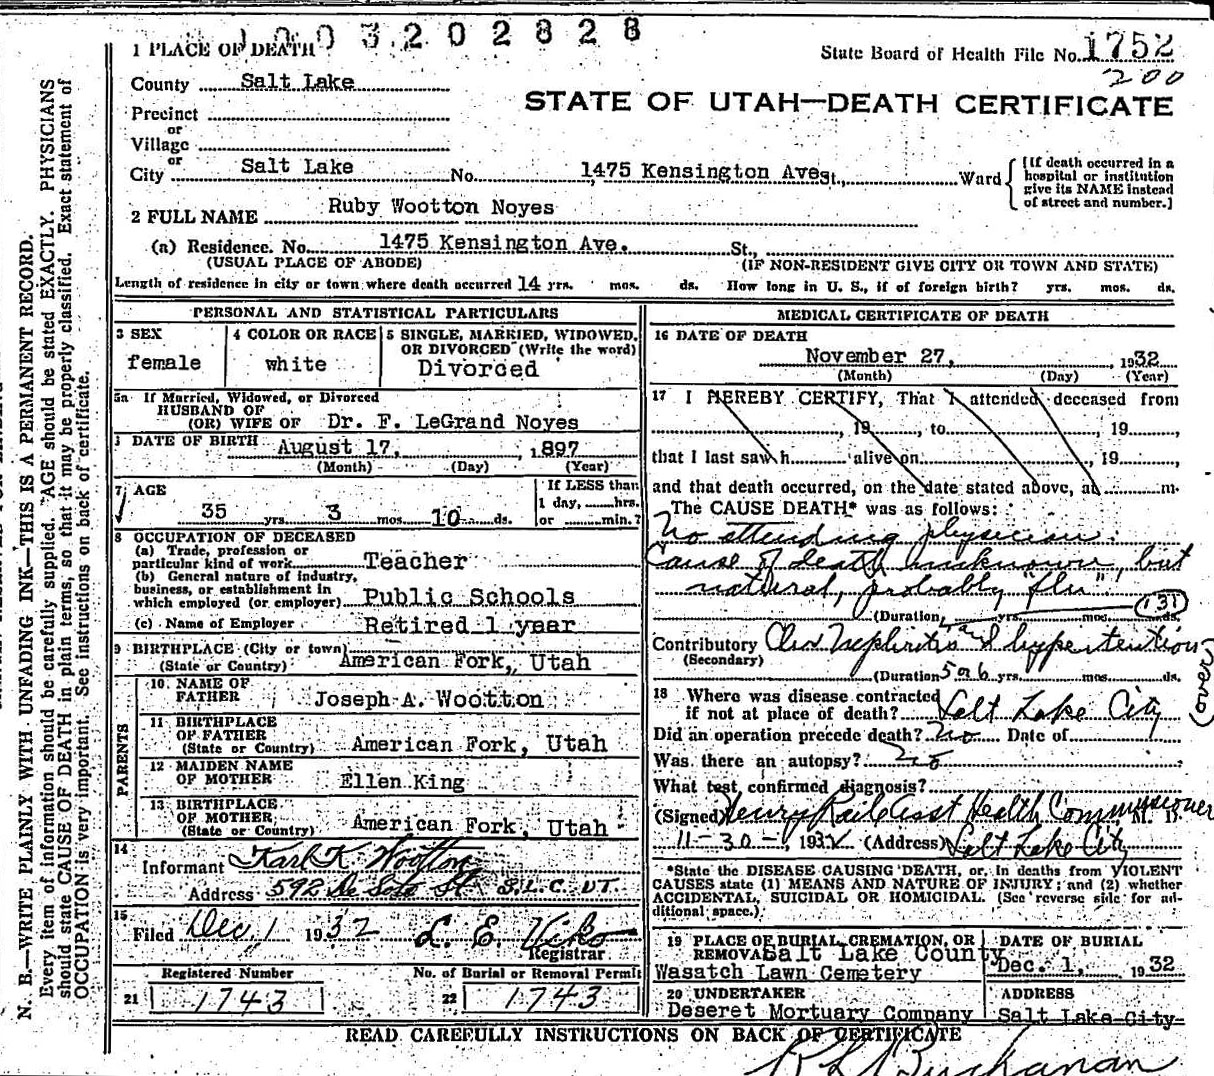 1003202828
1 PLACE OF DEATH
State Board of Health File No. 1752
200
County Salt Lake
STATE OF UTAH—DEATH CERTIFICATE
Precinct
or
Village
or
City Salt Lake No. 1475 Kensington Ave. St., Ward
[If death occurred in a
hospital or institution
give its NAME instead
of street and number.]
2 FULL NAME Ruby Wootton Noyes
(a) Residence. No. 1475 Kensington Ave. St.,
(USUAL PLACE OF ABODE) (IF NON-RESIDENT GIVE CITY OR TOWN AND STATE)
Length of residence in city or town where death occurred 14 yrs. mos. ds. How long in U. S., if of foreign birth? yrs. mos. ds.
PERSONAL AND STATISTICAL PARTICULARS
3 SEX
female
4 COLOR OR RACE
white
5 SINGLE, MARRIED, WIDOWED,
OR DIVORCED (Write the word)
Divorced
5a If Married, Widowed, or Divorced
HUSBAND OF
(OR) WIFE OF Dr. F. LeGrand Noyes
DATE OF BIRTH August 17, 1897
(Month) (Day) (Year)
7 AGE
35 yrs. 3 mos. 10 ds.
If LESS than
1 day, hrs.
or min.?
8 OCCUPATION OF DECEASED
(a) Trade, profession or
particular kind of work Teacher
(b) General nature of industry,
business, or establishment in
which employed (or employer) Public Schools
(c) Name of Employer Retired 1 year
9 BIRTHPLACE (City or town)
(State or Country) American Fork, Utah
PARENTS
10 NAME OF
FATHER Joseph A. Wootton
11 BIRTHPLACE
OF FATHER
(State or Country) American Fork, Utah
12 MAIDEN NAME
OF MOTHER Ellen King
13 BIRTHPLACE
OF MOTHER
(State or Country) American Fork, Utah
14
Informant Karl K. Wootton
Address 592 De Soto St S.L.C. UT.
15
Filed Dec 1 1932 L. E. Viko
Registrar
Registered Number
21 1743
No. of Burial or Removal Permit
22 1743
MEDICAL CERTIFICATE OF DEATH
16 DATE OF DEATH
November 27, 1932
(Month) (Day) (Year)
17 I HEREBY CERTIFY, That I attended deceased from
, 19 , to , 19 ,
that I last saw h alive on , 19 ,
and that death occurred, on the date stated above, at m.
The CAUSE DEATH* was as follows:
No attending physician.
Cause of death unknown, but
natural, probably "flu"
(Duration yrs. mos. ds.
131
Contributory Chr Nephritis and hypertention
(Secondary)
(Duration 5 or 6 yrs. mos. ds.
(over)
18 Where was disease contracted
if not at place of death? Salt Lake City
Did an operation precede death? No Date of
Was there an autopsy? No
What test confirmed diagnosis?
(Signed) Henry Raile Asst Health Commissioner M. D.
11-30-, 1932 (Address) Salt Lake City
*State the DISEASE CAUSING DEATH, or, in deaths from VIOLENT
CAUSES state (1) MEANS AND NATURE OF INJURY; and (2) whether
ACCIDENTAL, SUICIDAL OR HOMICIDAL. (See reverse side for ad-
ditional space.)
19 PLACE OF BURIAL, CREMATION, OR
REMOVAL Salt Lake County
Wasatch Lawn Cemetery
DATE OF BURIAL
Dec. 1, 1932
20 UNDERTAKER
Deseret Mortuary Company
ADDRESS
Salt Lake City
READ CAREFULLY INSTRUCTIONS ON BACK OF CERTIFICATE
Buchanan
N. B.—WRITE PLAINLY WITH UNFADING INK—THIS IS A PERMANENT RECORD.
Every item of information should be carefully supplied. AGE should be stated EXACTLY. PHYSICIANS
should state CAUSE OF DEATH in plain terms, so that it may be properly classified. Exact statement of
OCCUPATION is very important. See instructions on back of certificate.